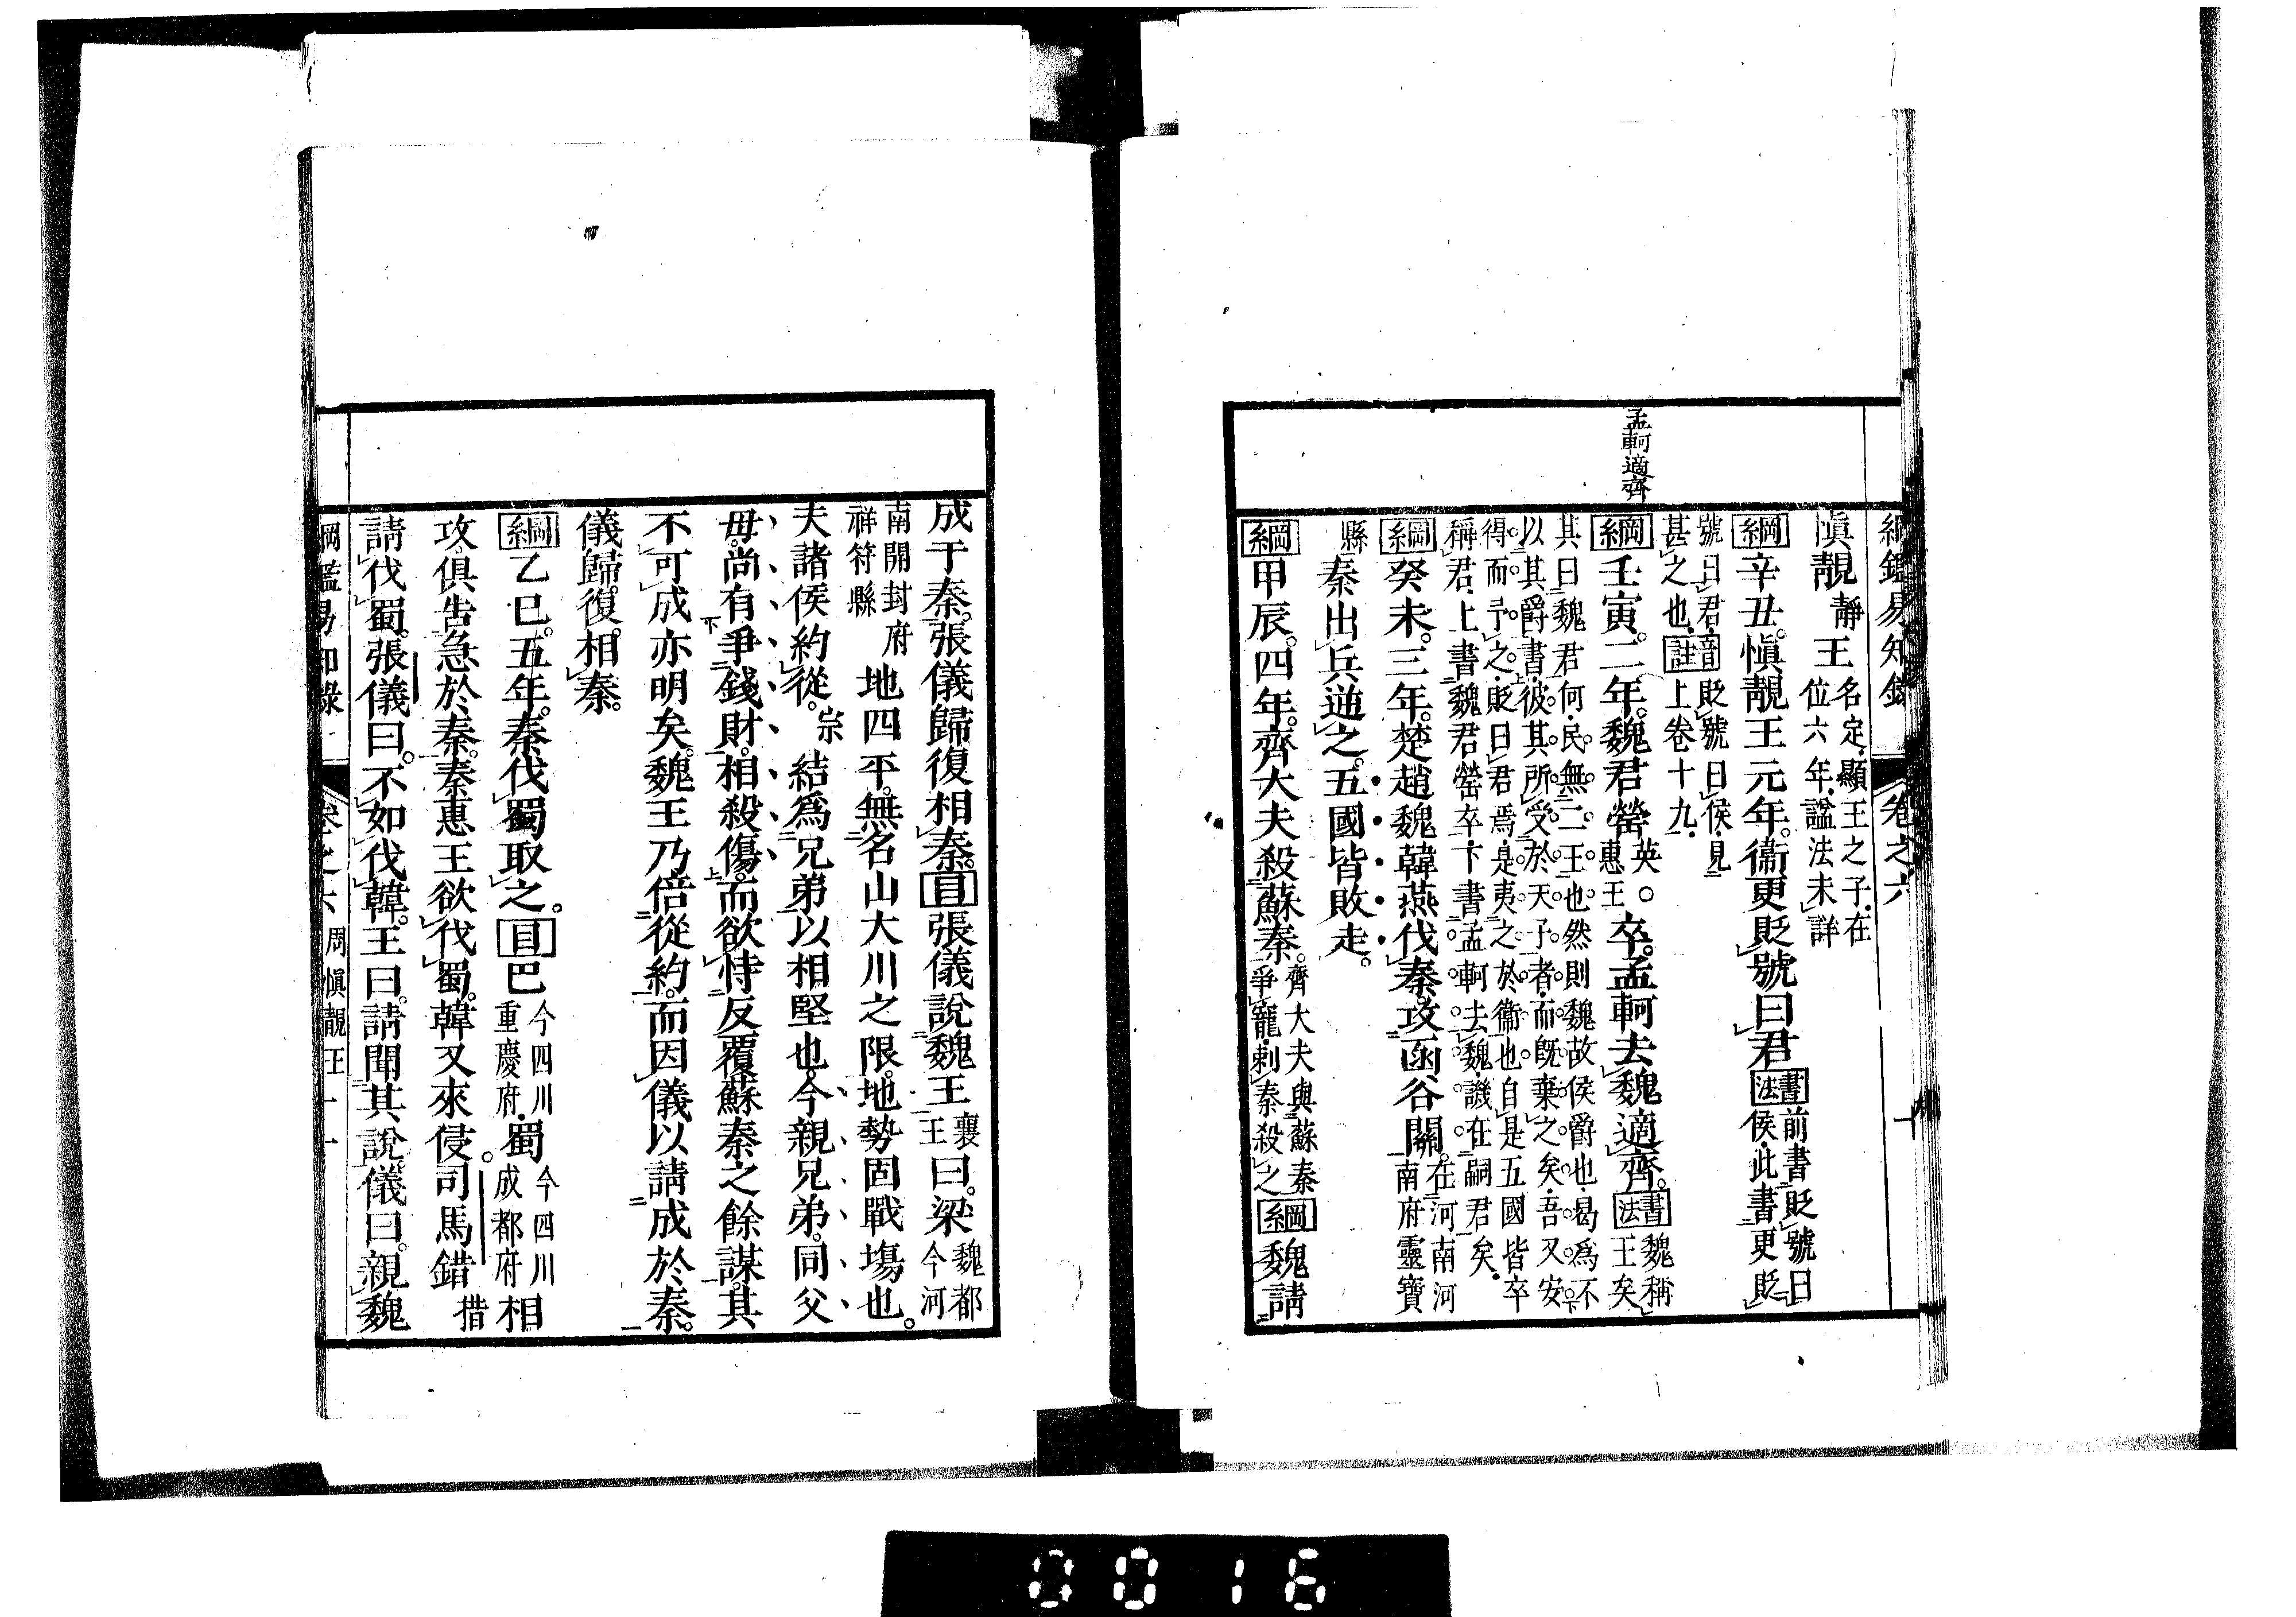 孟軻適齊
綱鑑易知錄 卷之六
慎靚靜王名定顯王之子在位六年謚法未詳
綱辛丑慎靚王元年衞更貶號曰君書法前書貶號曰侯此書更貶
號曰君甚之也音註貶號曰侯見上卷十九
綱壬寅二年魏君罃英惠王卒孟軻去魏適齊書法魏稱王矣
其曰魏君何民無二王也然則魏故侯爵也曷爲不
以其爵書彼其所受於天子者而旣棄之矣吾又安
得而予之貶曰君焉是夷之於衞也自是五國皆卒
稱君上書魏君罃卒下書孟軻去魏譏在嗣君矣
綱癸未三年楚趙魏韓燕伐秦攻函谷關在河南河南府靈寶
縣秦出兵逆之五國皆敗走
綱甲辰四年齊大夫殺蘇秦齊大夫與蘇秦爭寵刺秦殺之綱魏請
成于秦張儀歸復相秦目張儀說魏王襄王曰梁魏都今河
南開封府祥符縣地四平無名山大川之限地勢固戰塲也
夫諸侯約從宗結爲兄弟以相堅也今親兄弟同父
母尚有爭錢財相殺傷而欲恃反覆蘇秦之餘謀其
不可成亦明矣魏王乃倍從約而因儀以請成於秦
儀歸復相秦
綱乙巳五年秦伐蜀取之目巴今四川重慶府蜀今四川成都府相
攻俱告急於秦秦惠王欲伐蜀韓又來侵司馬錯措
請伐蜀張儀曰不如伐韓王曰請聞其說儀曰親魏
綱鑑易知錄 卷之六 周慎靚王 十一
0016